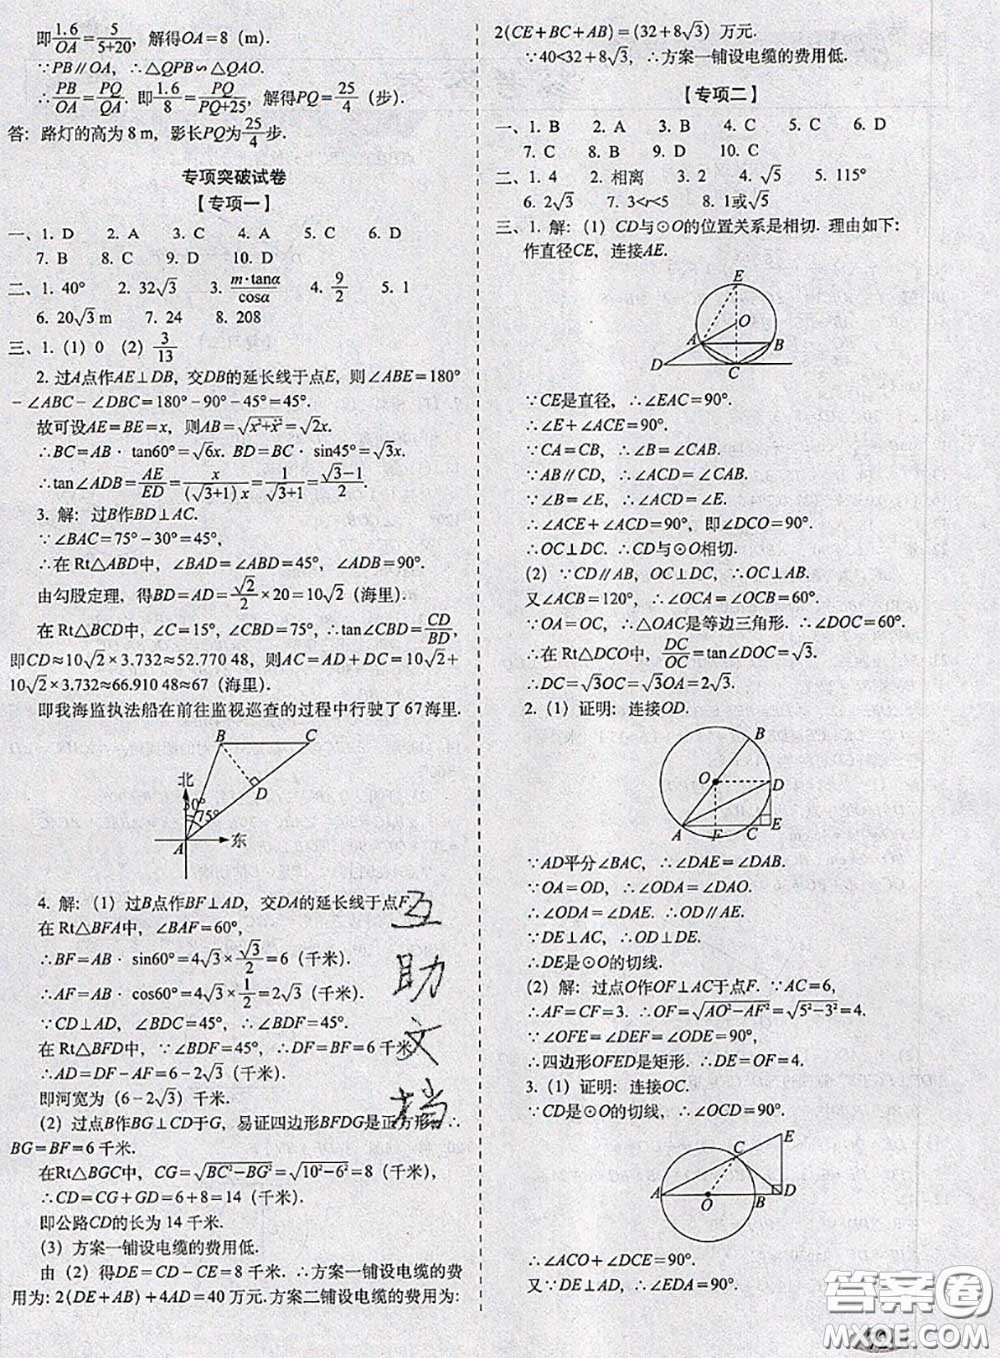 即1.6/OA=5/(5+20)，解得OA=8（m）.
∵PB∥OA，∴△QPB∽△QAO.
∴PB/OA=PQ/QA. 即1.6/8=PQ/(PQ+25)，解得PQ=25/4（步）.
答：路灯的高为8 m，影长PQ为25/4步.
专项突破试卷
【专项一】
一、1. D 2. A 3. C 4. A 5. C 6. D
7. B 8. A 9. D 10. D
二、1. 40° 2. 32√3 3. m·tanα/cosα 4. 9/2 5. 1
6. 20√3 m 7. 24 8. 208
三、1.（1）0 （2）3/13
2. 过A点作AE⊥DB，交DB的延长线于点E，则∠ABE=180°
-∠ABC-∠DBC=180°-90°-45°=45°.
故可设AE=BE=x，则AB=√(x²+x²)=√2x.
∴BC=AB·tan60°=√6x. BD=BC·sin45°=√3x.
∴tan∠ADB=AE/ED=x/((√3+1)x)=1/(√3+1)=(√3-1)/2.
3. 解：过B作BD⊥AC.
∵∠BAC=75°-30°=45°，
∴在Rt△ABD中，∠BAD=∠ABD=45°，∠ADB=90°.
由勾股定理，得BD=AD=√2/2×20=10√2（海里）.
在Rt△BCD中，∠C=15°，∠CBD=75°，∴tan∠CBD=CD/BD，
即CD≈10√2×3.732≈52.770 48，则AC=AD+DC=10√2+
10√2×3.732≈66.910 48≈67（海里）.
即我海监执法船在前往监视巡查的过程中行驶了67海里.
B C
北
D
30°
75°
A 东
4. 解：（1）过B点作BF⊥AD，交DA的延长线于点F.
在Rt△BFA中，∠BAF=60°，
∴BF=AB·sin60°=4√3×√3/2=6（千米）.
∴AF=AB·cos60°=4√3×1/2=2√3（千米）.
∵CD⊥AD，∠BDC=45°，∴∠BDF=45°.
在Rt△BFD中，∵∠BDF=45°，∴DF=BF=6千米.
∴AD=DF-AF=6-2√3（千米）.
即河宽为（6-2√3）千米.
（2）过点B作BG⊥CD于G，易证四边形BFDG是正方形，∴
BG=BF=6千米.
在Rt△BGC中，CG=√(BC²-BG²)=√(10²-6²)=8（千米），
∴CD=CG+GD=6+8=14（千米）.
即公路CD的长为14千米.
（3）方案一铺设电缆的费用低.
由（2）得DE=CD-CE=8千米.∴方案一铺设电缆的费
用为：2(DE+AB)+4AD=40万元.方案二铺设电缆的费用为：
互
助
文
档
2(CE+BC+AB)=(32+8√3)万元.
∵40<32+8√3，∴方案一铺设电缆的费用低.
【专项二】
一、1. B 2. A 3. B 4. C 5. C 6. D
7. C 8. B 9. D 10. C
二、1. 4 2. 相离 3. 2 4. √5 5. 115°
6. 2√3 7. 3<r<5 8. 1或√5
三、1. 解：（1）CD与⊙O的位置关系是相切. 理由如下：
作直径CE，连接AE.
E
O
A B
D C
∵CE是直径，∴∠EAC=90°.
∴∠E+∠ACE=90°.
∵CA=CB，∴∠B=∠CAB.
∵AB∥CD，∴∠ACD=∠CAB.
∵∠B=∠E，∴∠ACD=∠E.
∴∠ACE+∠ACD=90°，即∠DCO=90°.
∴OC⊥DC. ∴CD与⊙O相切.
（2）∵CD∥AB，OC⊥DC，∴OC⊥AB.
又∠ACB=120°，∴∠OCA=∠OCB=60°.
∵OA=OC，∴△OAC是等边三角形.∴∠DOC=60°.
∴在Rt△DCO中，DC/OC=tan∠DOC=√3.
∴DC=√3OC=√3OA=2√3.
2.（1）证明：连接OD.
B
O D
A F C E
∵AD平分∠BAC，∴∠DAE=∠DAB.
∵OA=OD，∴∠ODA=∠DAO.
∴∠ODA=∠DAE. ∴OD∥AE.
∵DE⊥AC，∴OD⊥DE.
∴DE是⊙O的切线.
（2）解：过点O作OF⊥AC于点F. ∵AC=6，
∴AF=CF=3. ∴OF=√(AO²-AF²)=√(5²-3²)=4.
∵∠OFE=∠DEF=∠ODE=90°，
∴四边形OFED是矩形. ∴DE=OF=4.
3.（1）证明：连接OC.
∵CD是⊙O的切线，∴∠OCD=90°.
E
C
A O B D
∴∠ACO+∠DCE=90°.
又∵DE⊥AD，∴∠EDA=90°.
答案圈
MXQE.COM